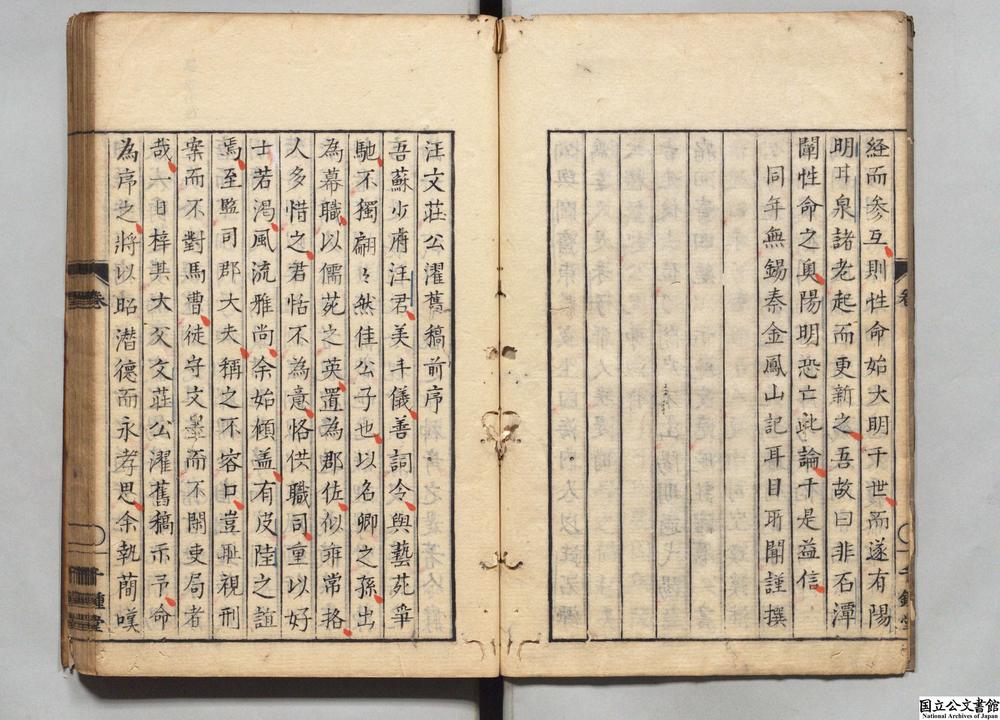 経而参互則性命始大明于世而遂有陽
明甘泉諸老起而更新之吾故曰非石潭
闡性命之奥陽明恐亡此論于是益信
同年無錫秦金鳳山記耳目所聞謹撰
汪文莊公濯舊稿前序
吾蘇少府汪君美丰儀善詞令與藝苑爭
馳不獨翩々然佳公子也以名卿之孫出
為幕職以儒苑之英置為郡佐似非常格
人多惜之君恬不為意恪供職司重以好
士若渴風流雅尚余始傾盖有皮陸之誼
焉至監司郡大夫稱之不容口豈與視刑
案而不對馬曹徒守文墨而不閑吏局者
哉六日梓其大父文莊公濯舊稿示予命
為序之將以昭潜德而永孝思余執簡嘆
卷
千鍾堂
国立公文書館
National Archives of Japan